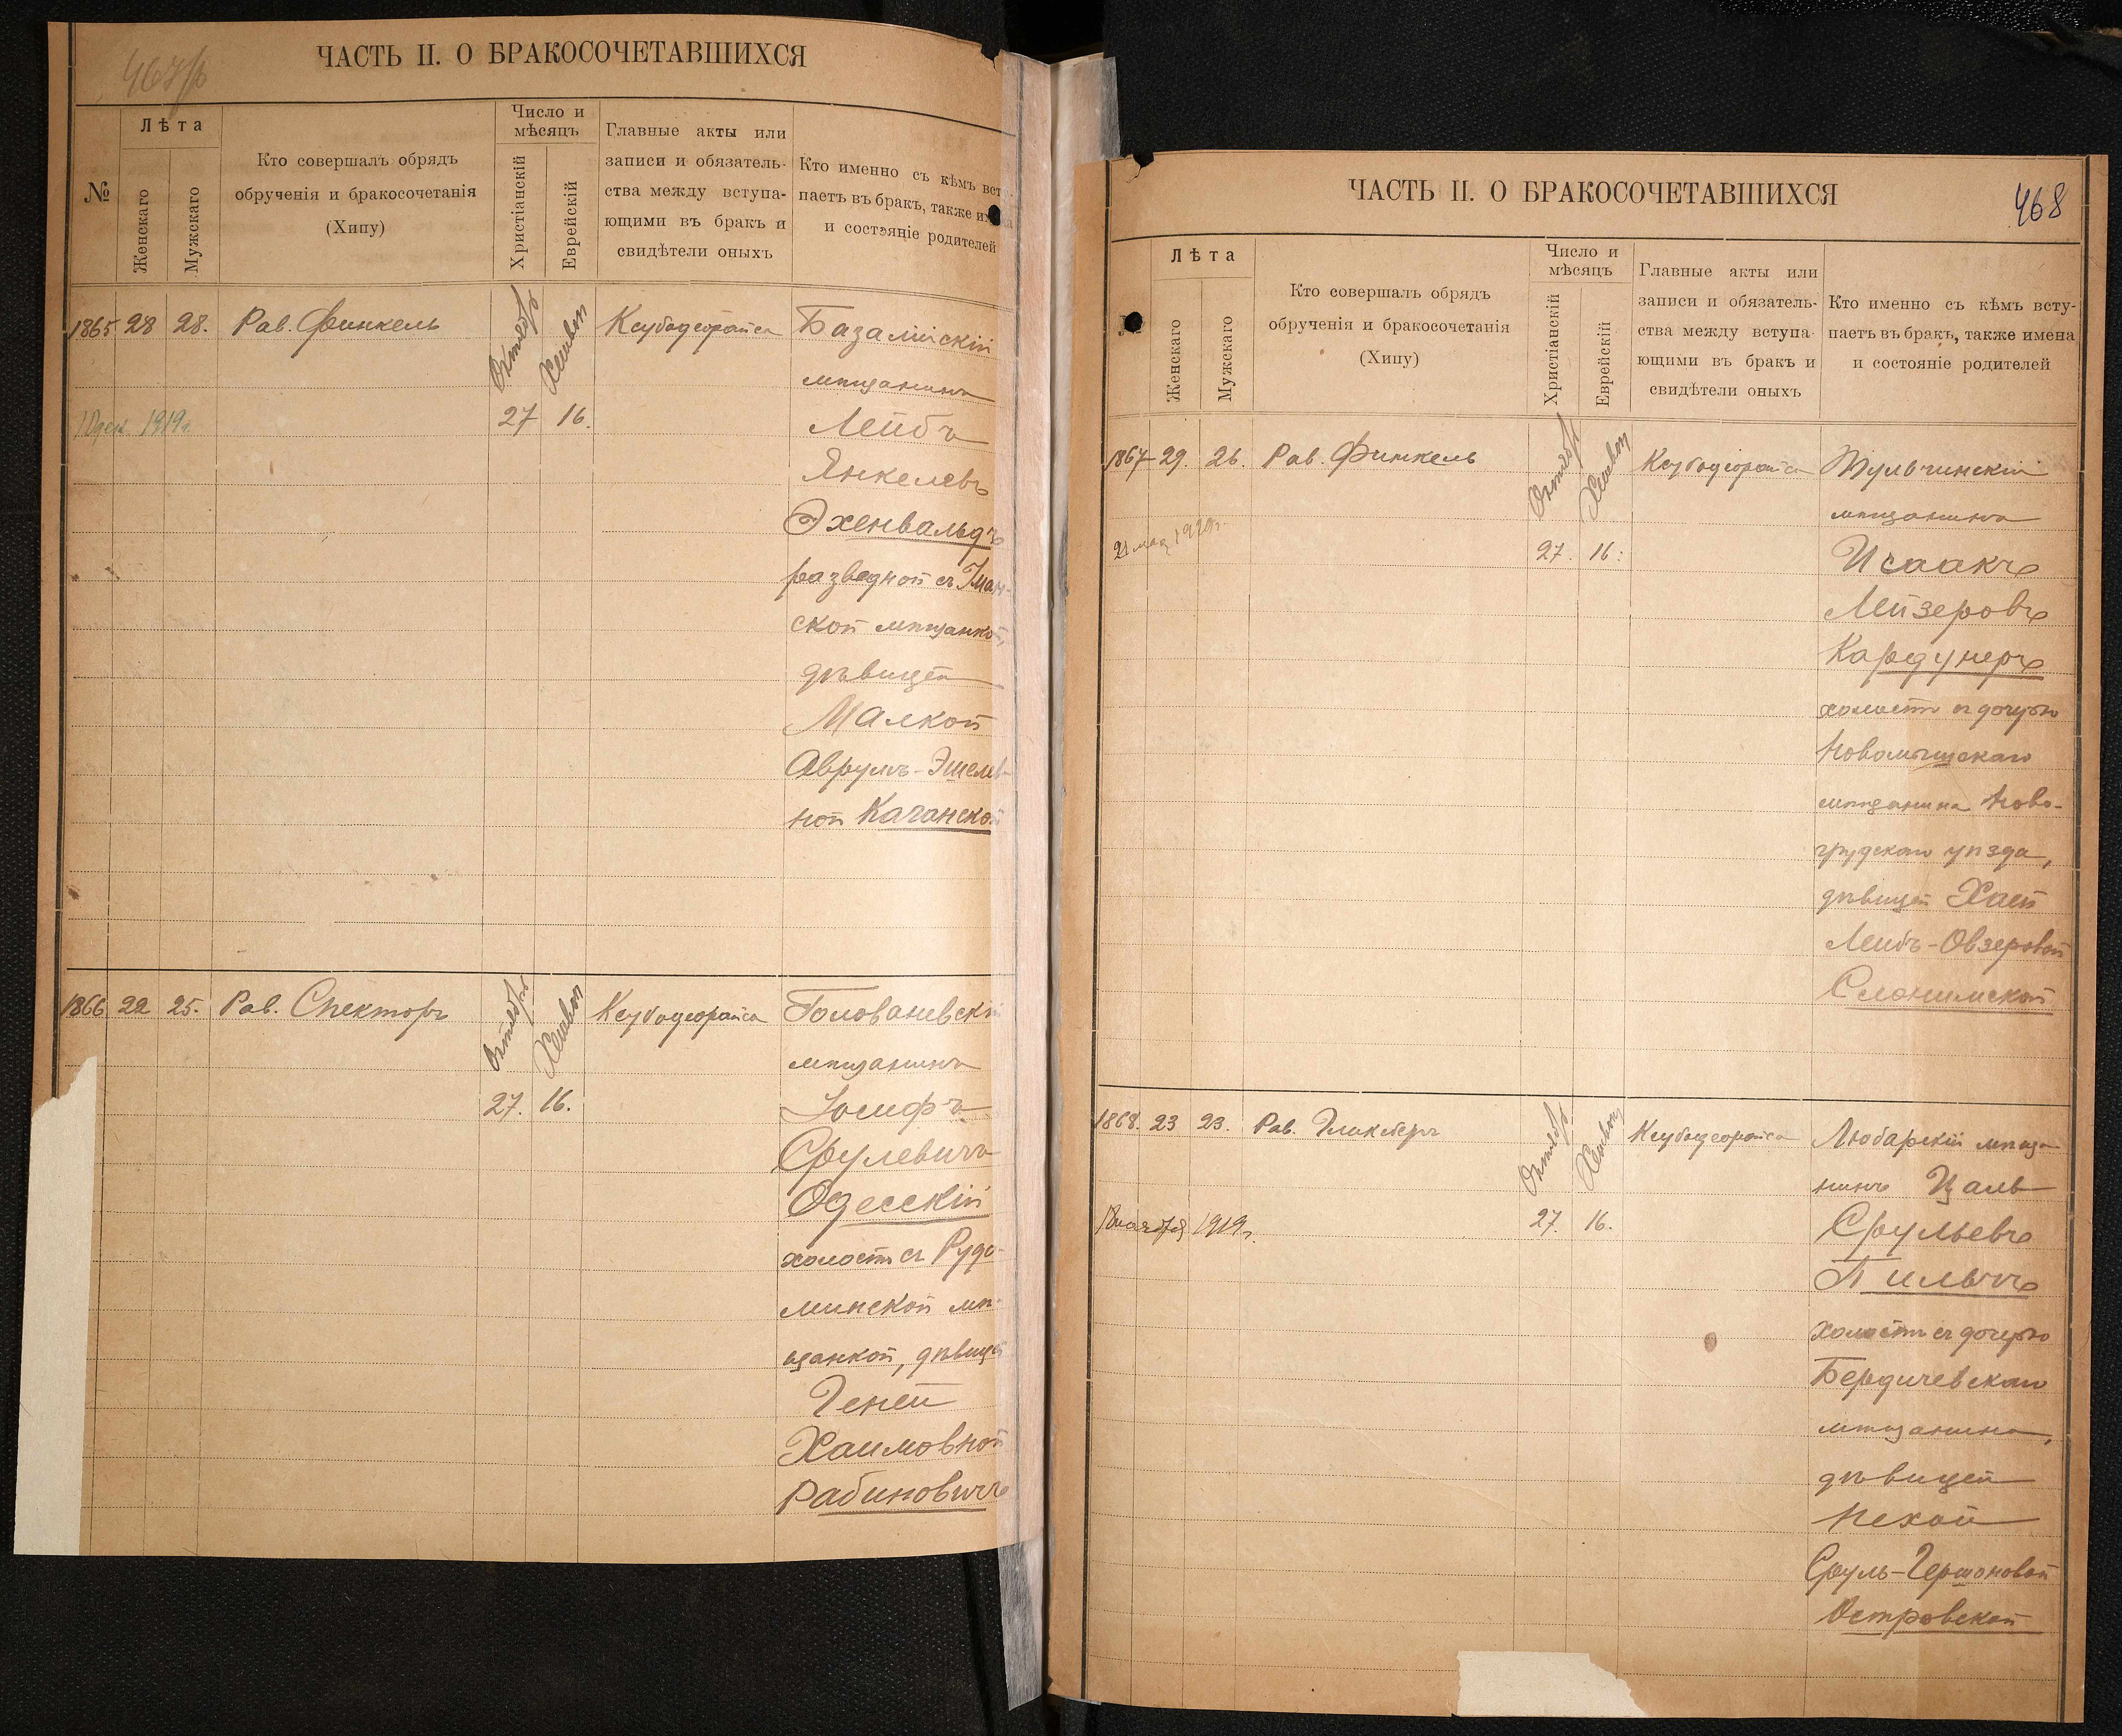 467/р
ЧАСТЬ II. О БРАКОСОЧЕТАВШИХСЯ
№
Лѣта
Женскаго
Мужскаго
Кто совершалъ обрядъ
обрученія и бракосочетанія
(Хипу)
Число и
мѣсяцъ
Христіанскій
Еврейскій
Главные акты или
записи и обязатель-
ства между вступа-
ющими въ бракъ и
свидѣтели оныхъ
Кто именно съ кѣмъ вст
паетъ въ бракъ, также
и состояніе родителей
1865 28 28. Рав. Финкель Октябрь Хешвон Ксубоцеорайса
27 16.
10 дек. 1919г.
Базалійскій
мѣщанинъ
Лейбъ
Янкелевъ
Эхенвальдъ
разведной съ Уман-
ской мѣщанкой,
дѣвицей
Малкой
Аврумъ-Эшелев-
ной Качанской
1866 22 25. Рав. Спекторъ Октябрь Хешвон Ксубоцеорайса
27. 16.
Голованевскій
мѣщанинъ
Іосифъ
Срулевичъ
Одесскій
холостъ съ Рудо-
минской мѣ-
щанкой, дѣвицей
Геней
Хаимовной
Рабиновичъ
468
ЧАСТЬ II. О БРАКОСОЧЕТАВШИХСЯ
Лѣта
Женскаго
Мужскаго
Кто совершалъ обрядъ
обрученія и бракосочетанія
(Хипу)
Число и
мѣсяцъ
Христіанскій
Еврейскій
Главные акты или
записи и обязатель-
ства между вступа-
ющими въ бракъ и
свидѣтели оныхъ
Кто именно съ кѣмъ всту-
паетъ въ бракъ, также имена
и состояніе родителей
1867 29. 26. Рав. Финкель Октябрь Хешвон Ксубоцеорайса
27. 16.
21 мая 1920г.
Тульчинскій
мѣщанинъ
Исаакъ
Лейзеровъ
Кардунеръ
холостъ съ дочерью
Новомышскаго
мѣщанина Ново-
грудскаго уѣзда,
дѣвицей Хаей
Лейбъ-Овзеровой
Слонимской
1868. 23 23. Рав. Гликберъ Октябрь Хешвон Ксубоцеорайса
27. 16.
18 ноября 1919г.
Любарскій мѣща-
нинъ Цаль
Срульевъ
Пильчъ
холостъ съ дочерью
Бердичевскаго
мѣщанина,
дѣвицей
Нехой
Сруль-Гершоновой
Островской